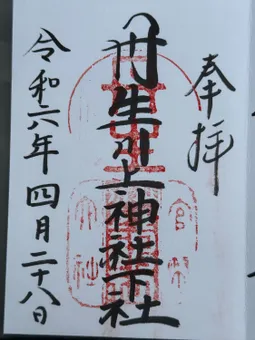 奉拝
丹生川上神社下社
令和六年四月二十八日